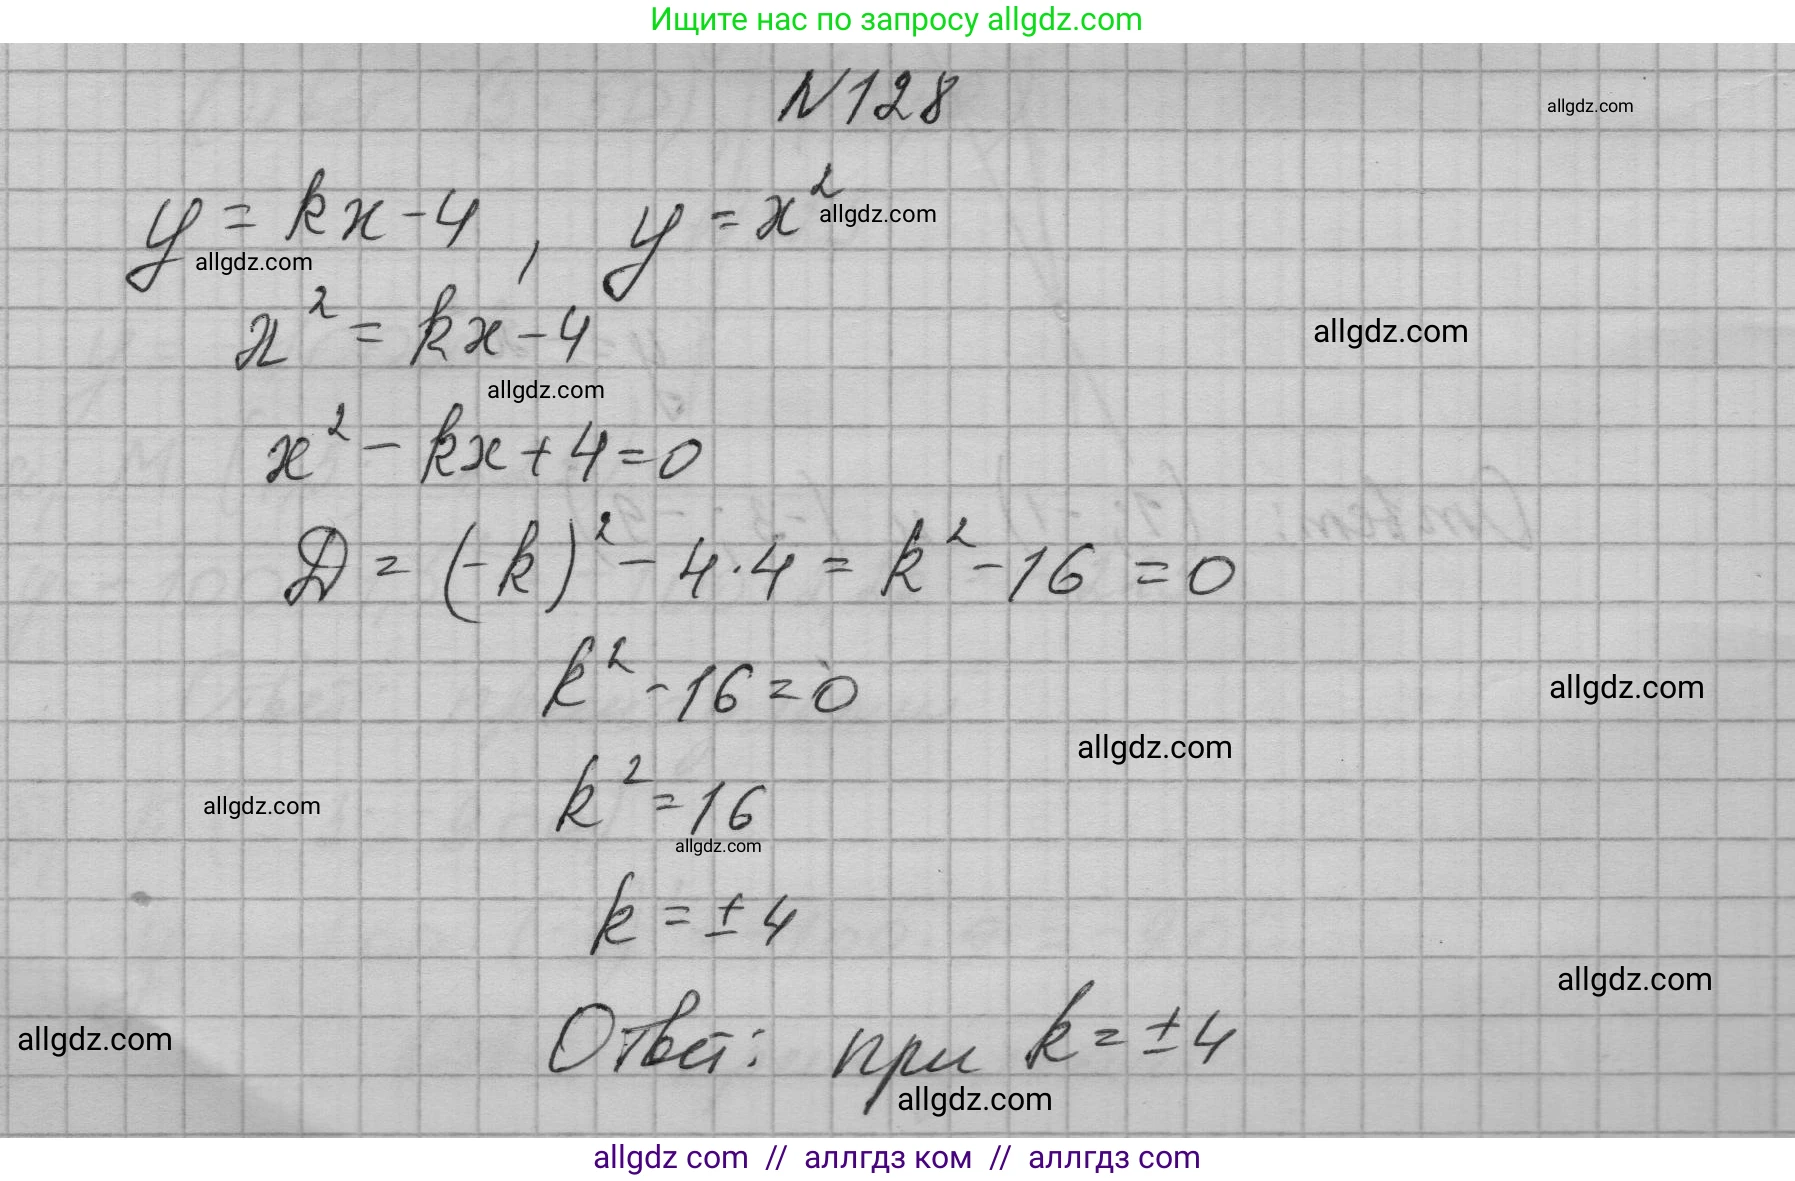 Ищите нас по запросу allgdz.com
N128
allgdz.com
y = kx - 4 , y = x²
allgdz.com
allgdz.com
x² = kx - 4
allgdz.com
allgdz.com
x² - kx + 4 = 0
Д = (-k)² - 4·4 = k² - 16 = 0
k² - 16 = 0
allgdz.com
allgdz.com
k² = 16
allgdz.com
allgdz.com
k = ± 4
allgdz.com
Ответ: при k = ± 4
allgdz.com
allgdz.com
allgdz com // аллгдз ком // аллгдз com